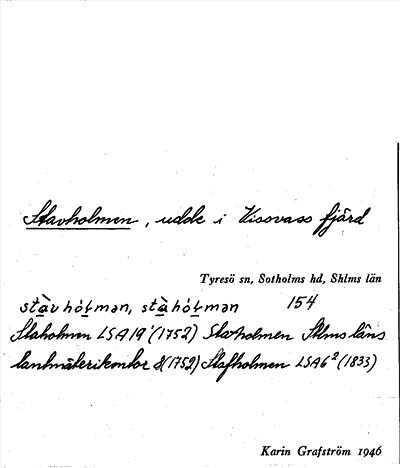 Stavholmen, udde i Vissvass fjärd
Tyresö sn, Sotholms hd, Shlms län
stàvhól̵mən, stàhól̵mən 154
Staholmen LSA19¹(1752) Stavholmen Sthlms läns
lantmäterikontor 8(1752) Stafholmen LSA6²(1833)
Karin Grafström 1946